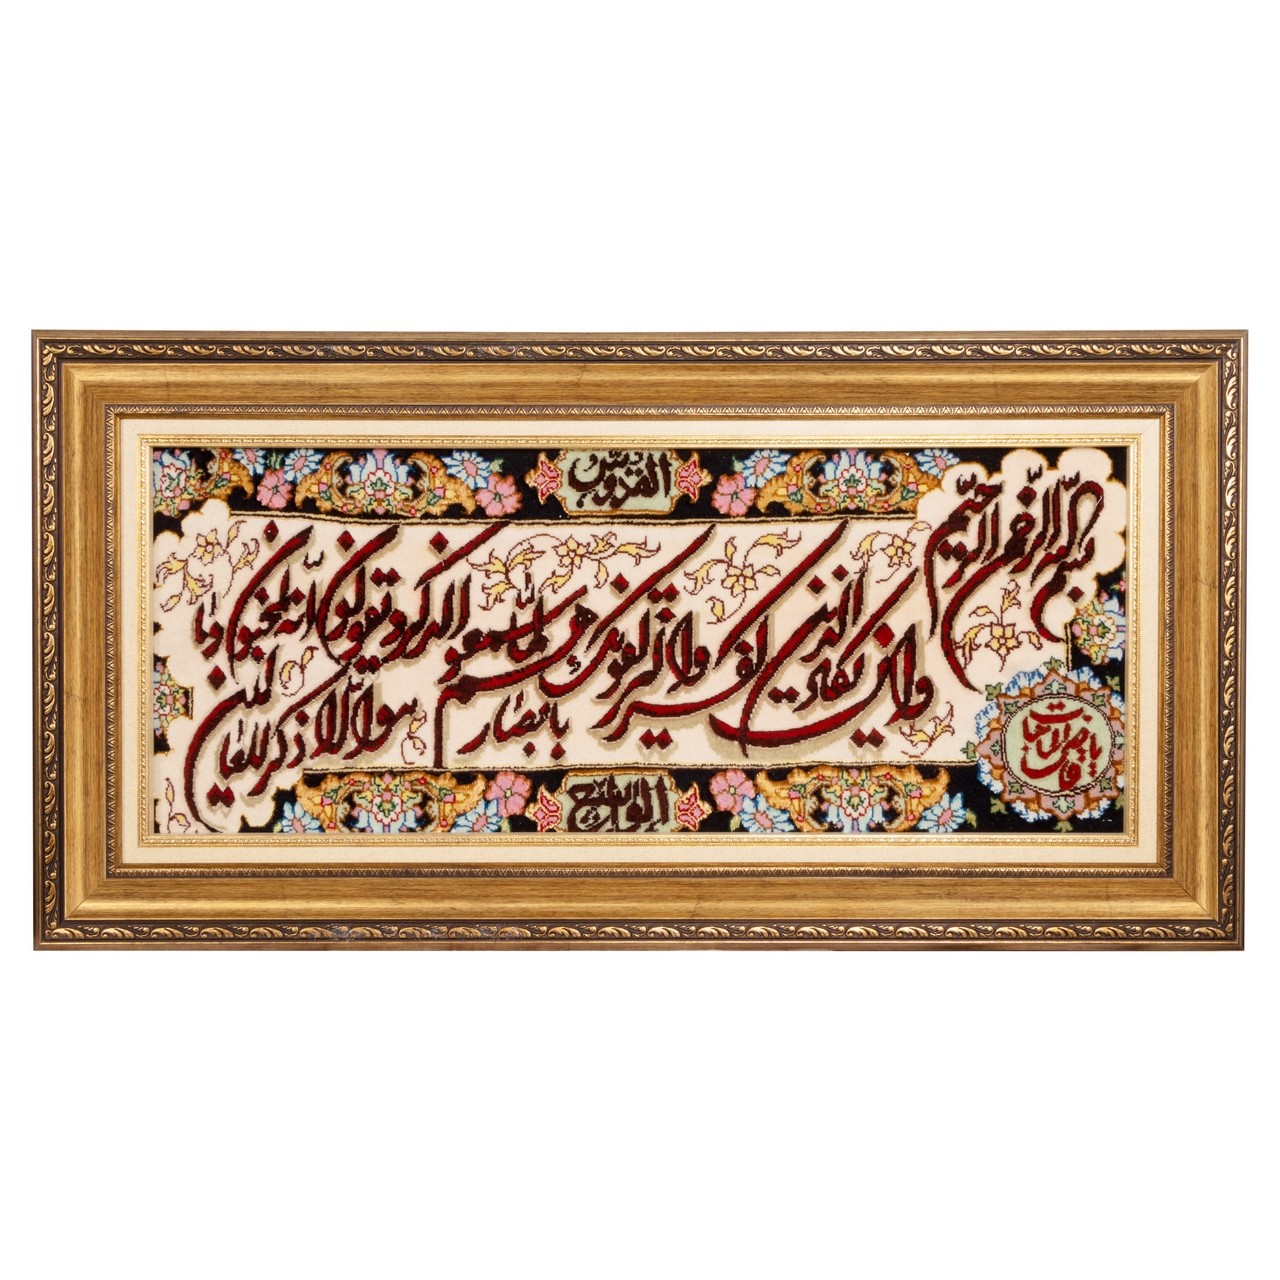 القدوس
بسم الله الرحمن الرحیم
وان یکاد الذین کفروا لیزلقونک بابصارهم لما سمعوا الذکر و یقولون انه لمجنون وما
هو الا ذکر للعالمین
یا قاضی الحاجات
الواسع